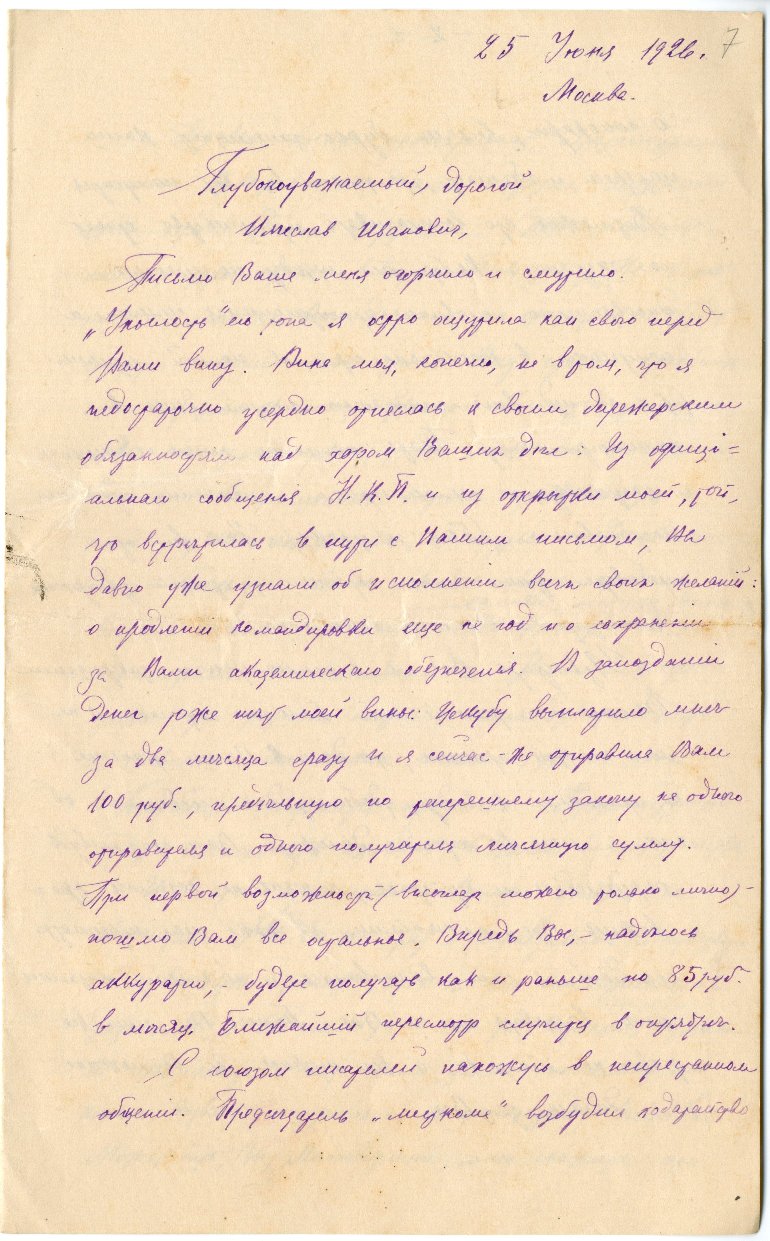 25 Июня 1926. 7
Москва.
Глубокоуважаемый, дорогой
Вячеслав Иванович,
Письмо Ваше меня огорчило и смутило.
„Унылость" его тона я остро ощутила как свою перед
Вами вину. Вина моя, конечно, не в том, что я
недостаточно усердно отнеслась к своим дирежерским
обязанностям над хором Ваших дел: Из офиці-
альнаго сообщенія Н.К.П. и из открытки моей, той,
что встретилась в пути с Вашим письмом, Вы
давно уже узнали об исполненіи всех своих желаній:
о продленіи командировки еще на год и о сохраненіи
за Вами академическаго обезпеченія. В запозданіи
денег тоже нет моей вины: Цекубу выплатило мне
за два месяца сразу и я сейчас-же отправила Вам
100 руб., предельную по теперешнему закону на одного
отправителя и одного получателя месячную сумму.
При первой возможности (высылать можно только лично) -
пошлю Вам все остальное. Впредь Вы, - надеюсь
аккуратно, - будете получать как и раньше по 85 руб.
в месяц. Ближайшій пересмотр случится в октябре.
С союзом писателей нахожусь в непрестанном
общеніи. Председатель „месткома" возбудил ходатайство